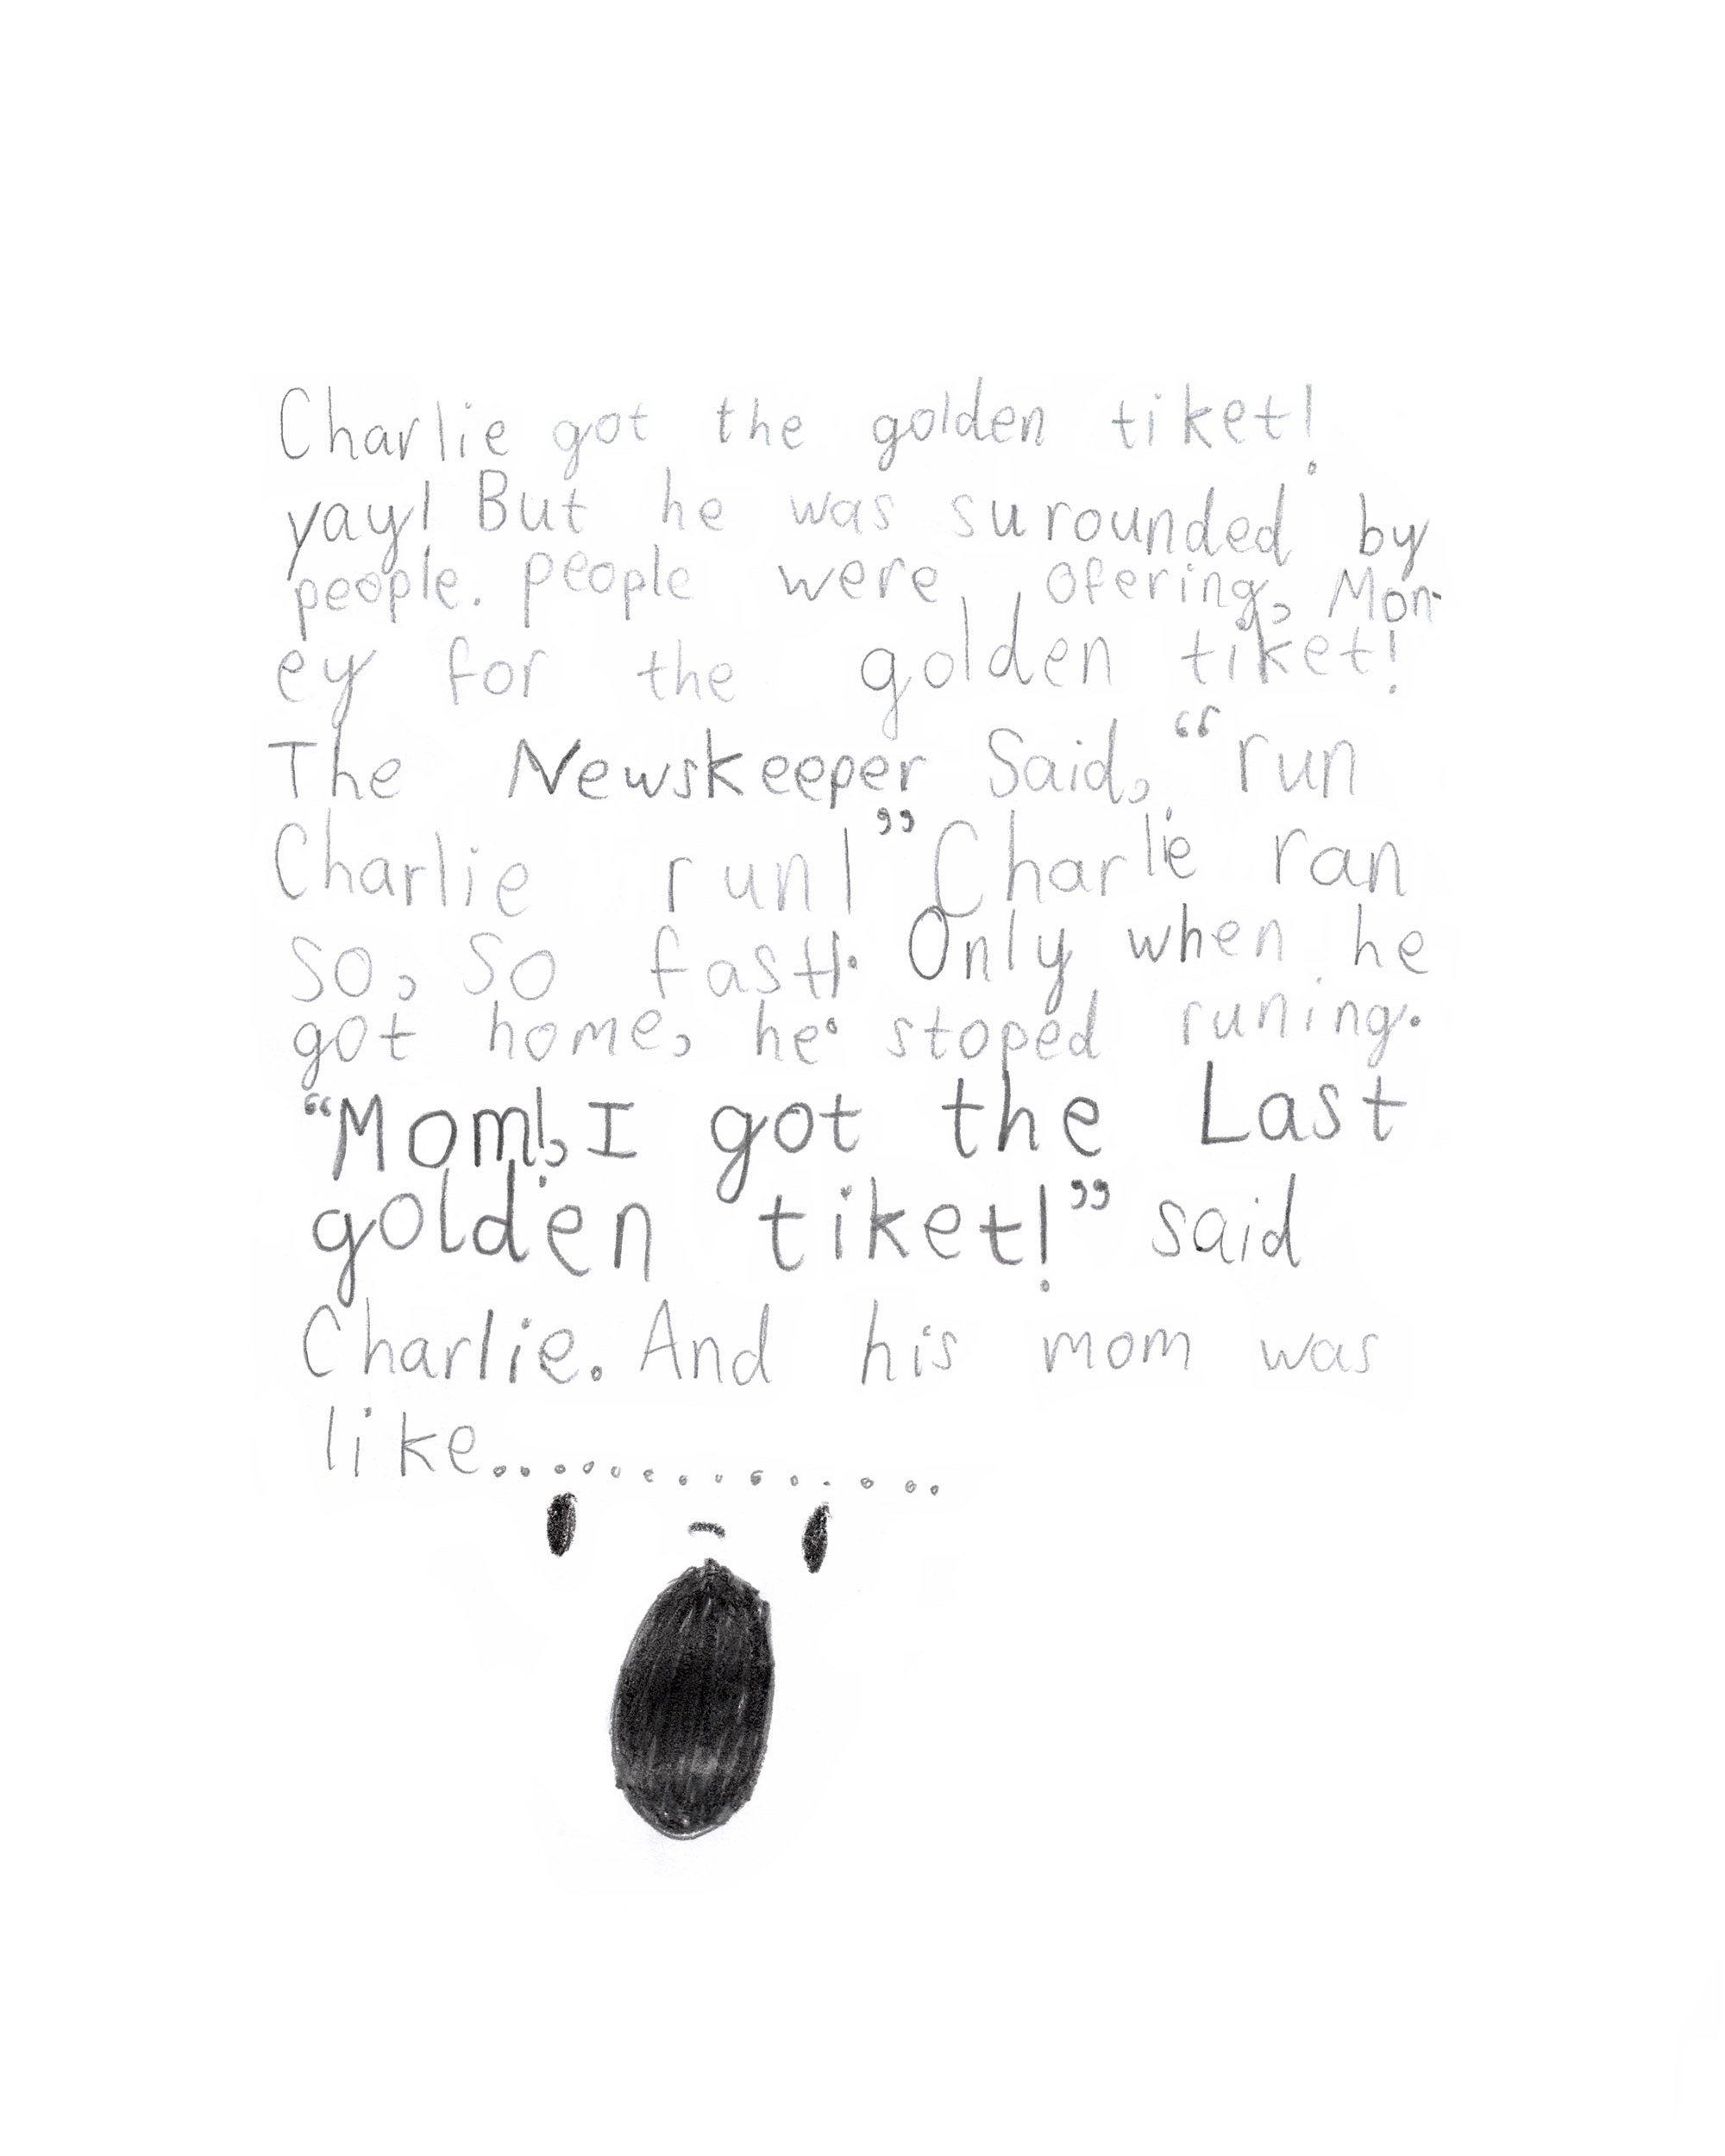 Charlie got the golden tiket!
yay! But he was surounded by
people. people were ofering, Mon-
ey for the golden tiket!
The Newskeeper Said, “run
Charlie run!” Charlie ran
so, so fast!. Only when he
got home, he stoped runing.
“Mom!, I got the Last
golden tiket!” said
Charlie. And his mom was
like................